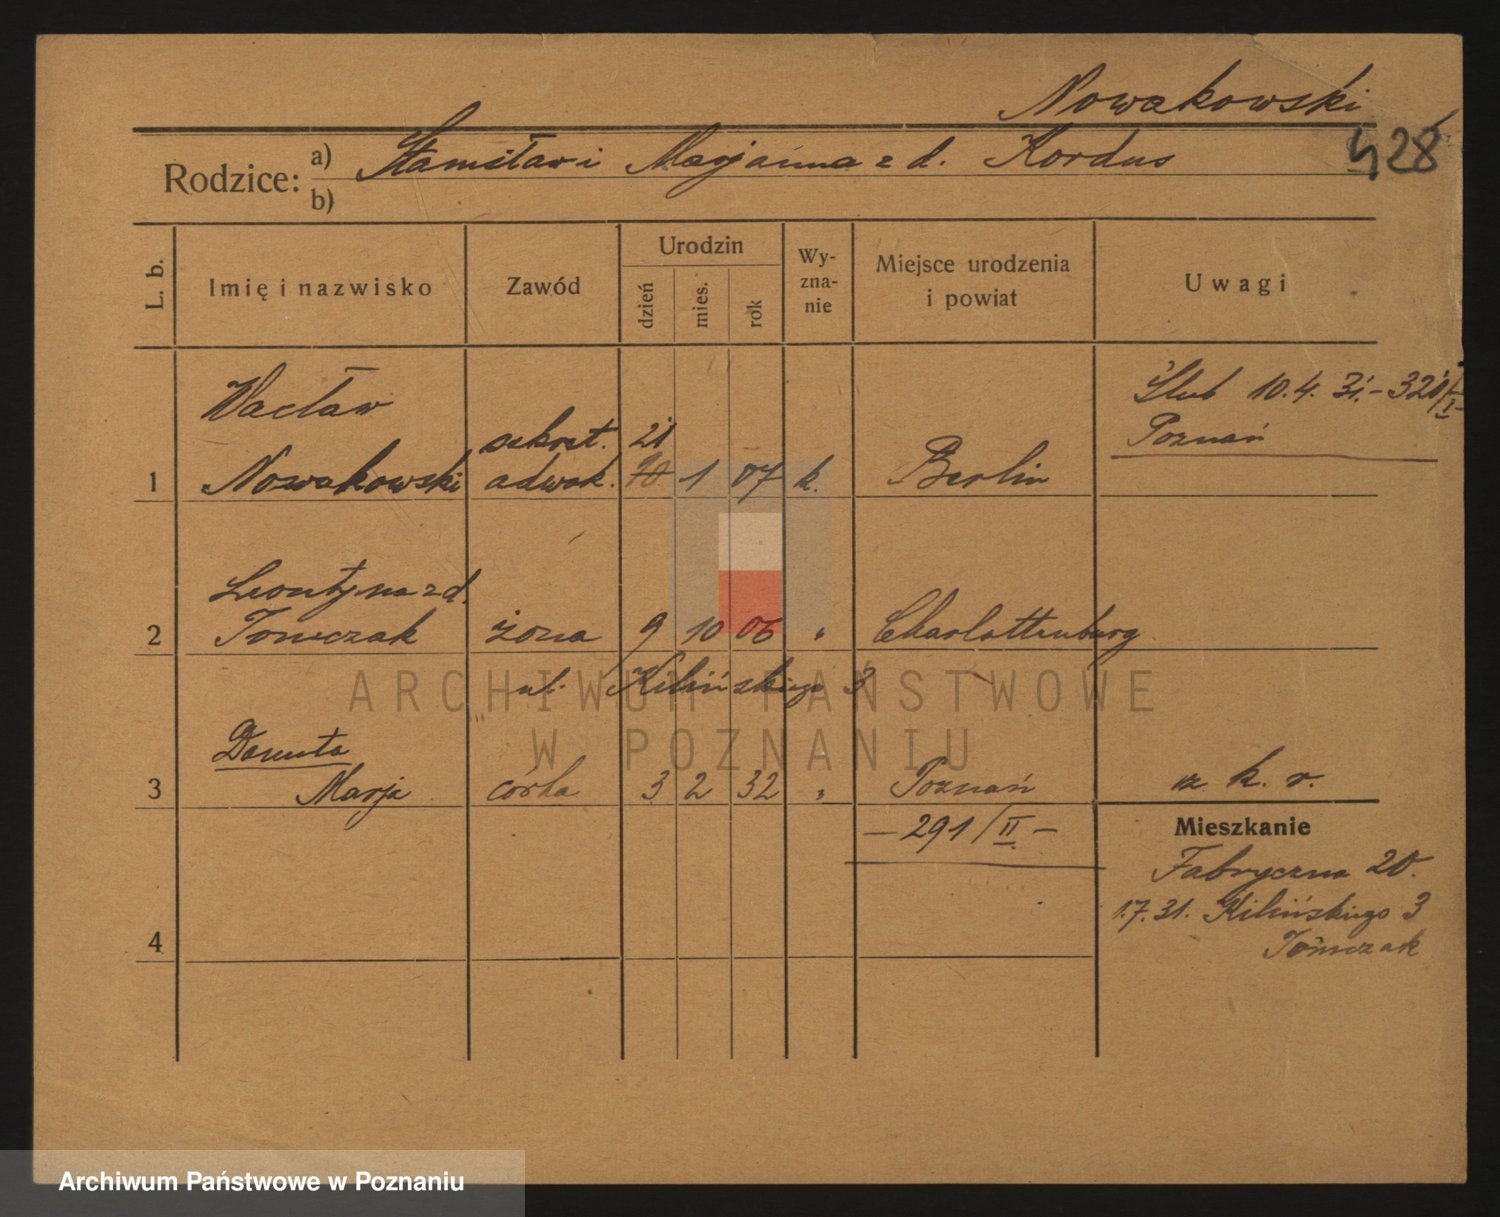 Nowakowski
428
Rodzice: a) Stanisław i Marjanna z d. Kordus
b)
L. b.
Imię i nazwisko
Zawód
Urodzin
dzień
mies.
rok
Wy-
zna-
nie
Miejsce urodzenia
i powiat
Uwagi
Wacław
Ślub 10.4.31.–328/I
Poznań
sekret. 21
1 Nowakowski adwok. 1 07 k. Berlin
Leontyna z d.
2 Tomczak żona 9 10 06 " Charlottenburg
ul. Kilińskiego 3
ARCHIWUM PAŃSTWOWE
W POZNANIU
Danuta
3 Marja córka 3 2 32 " Poznań k. r.
– 291/II –
Mieszkanie
Fabryczna 20.
1.7.31. Kilińskiego 3
Tomczak
4
Archiwum Państwowe w Poznaniu